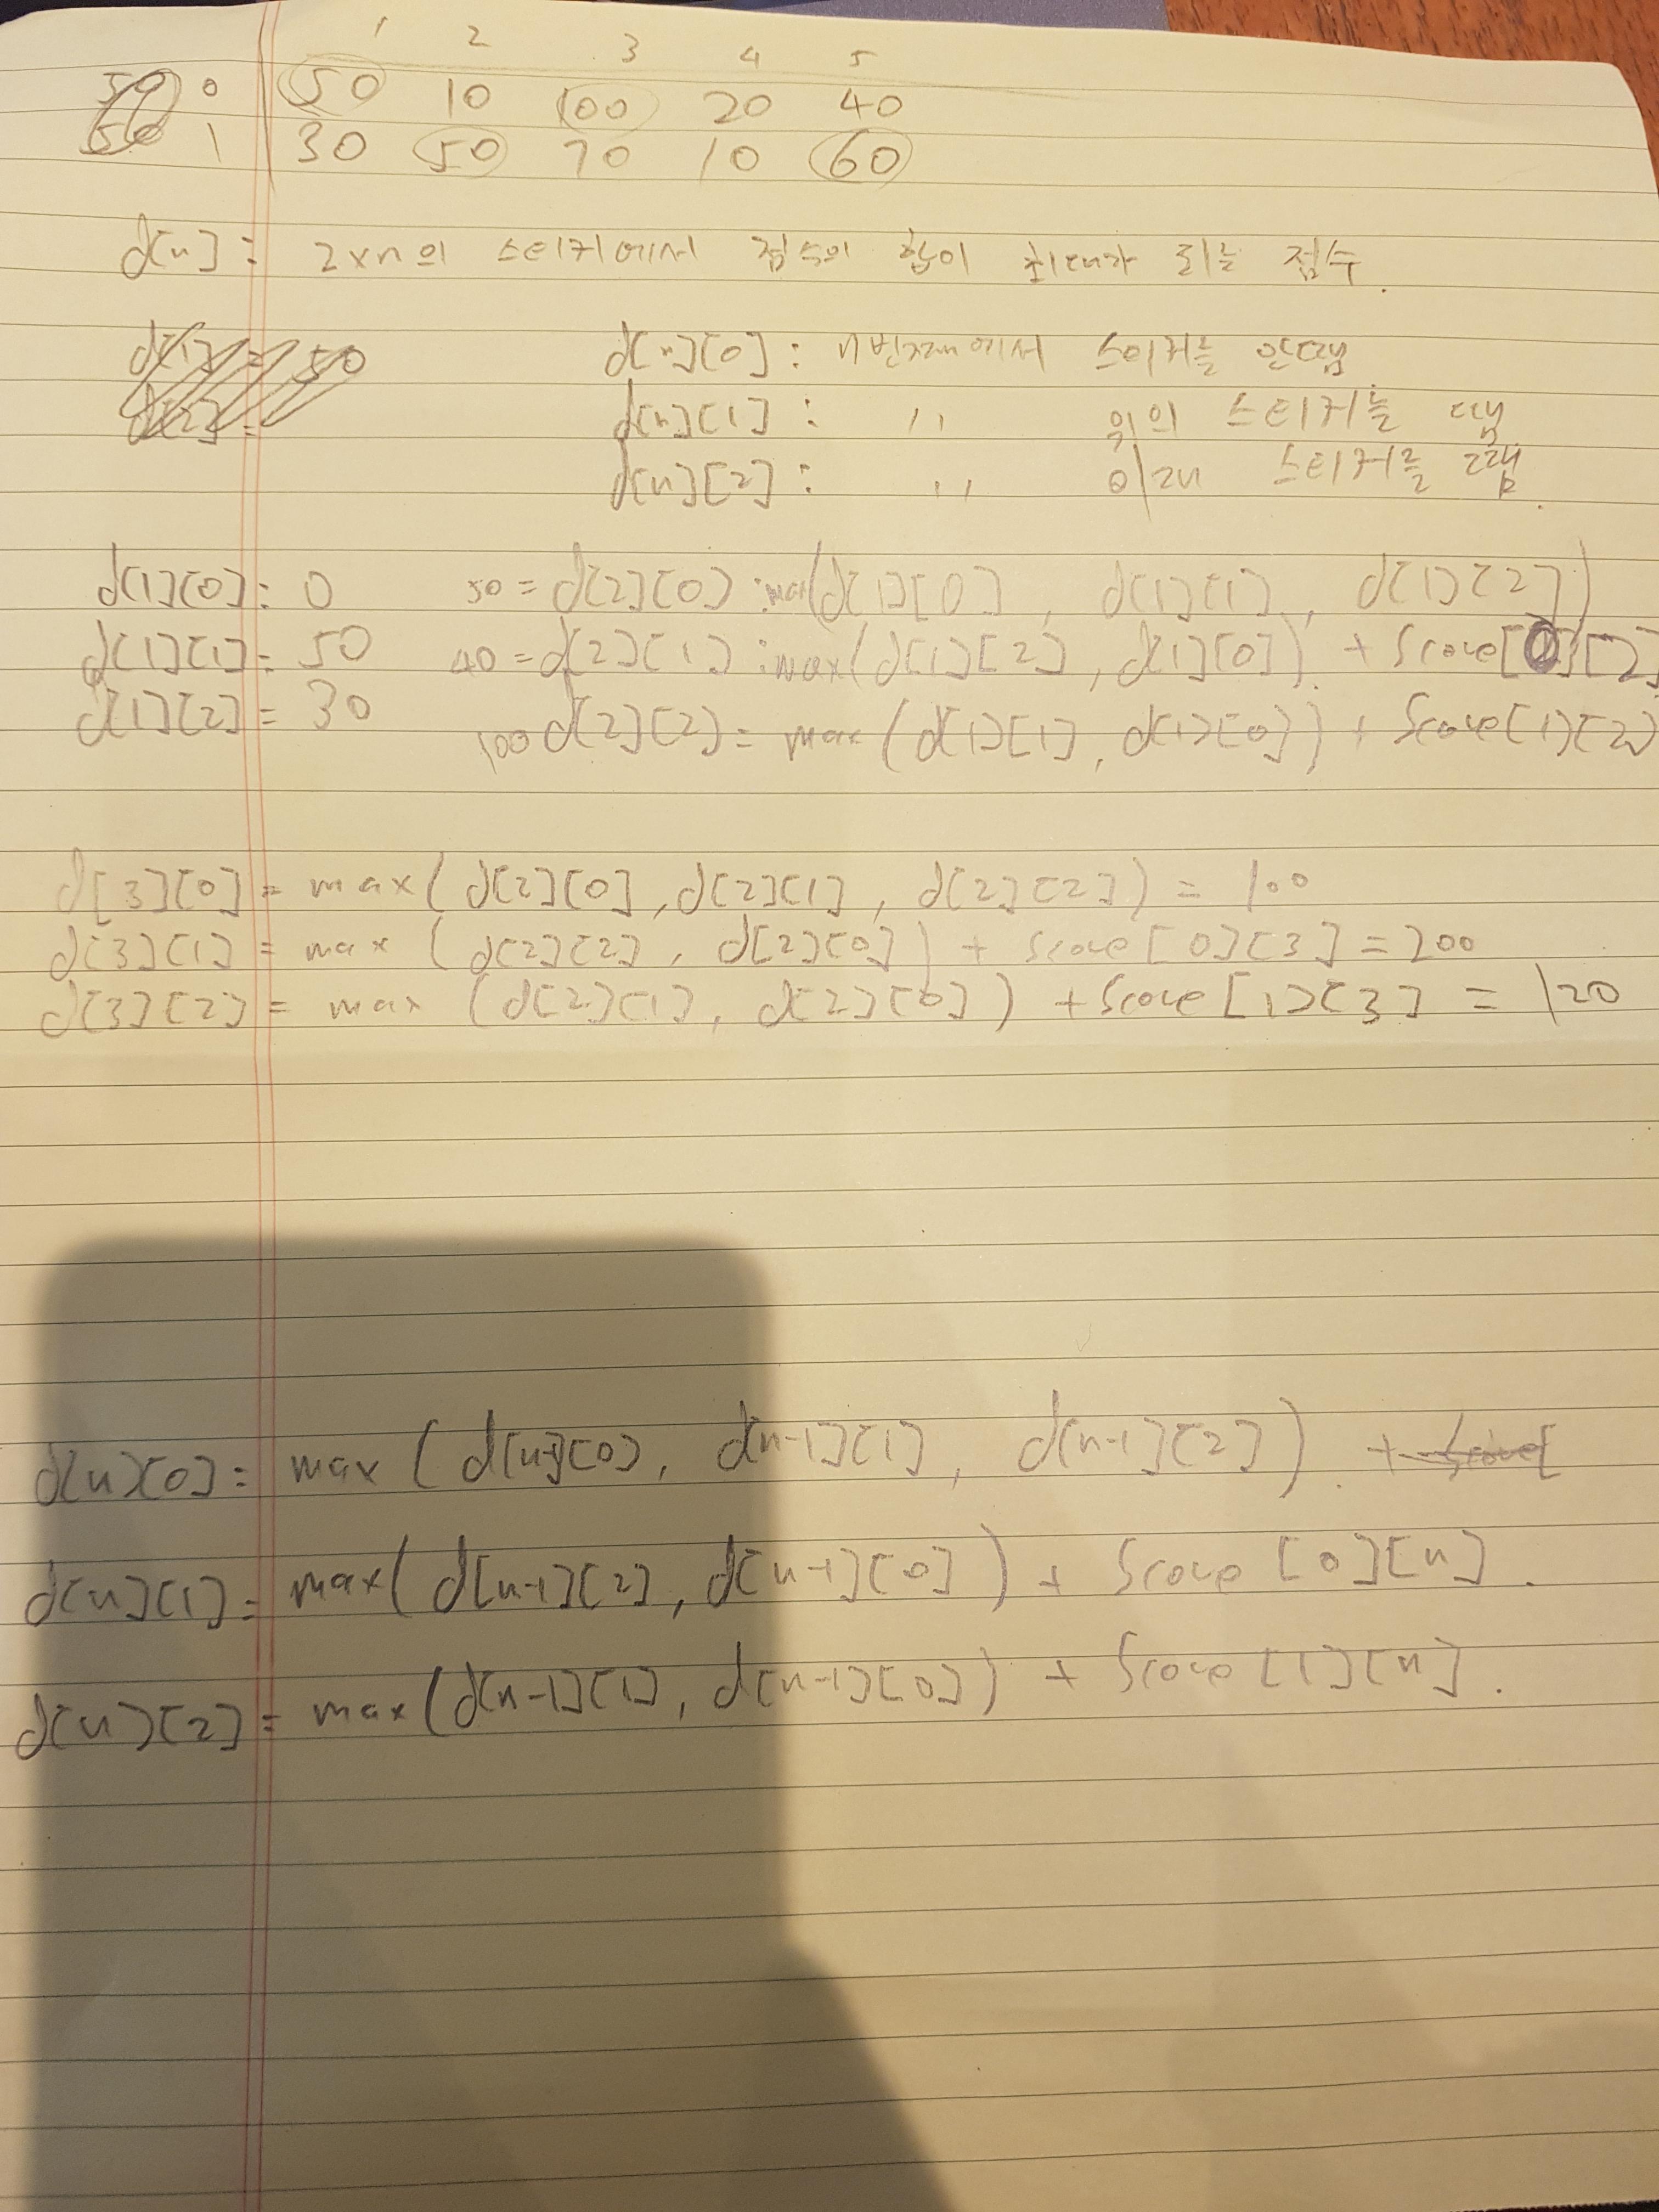 1 2 3 4 5
50 0 50 10 100 20 40
50 1 30 50 70 10 60
d[n] : 2xn의 스티커에서 점수의 합이 최대가 되는 점수.
d[1] = 50
d[2] =
d[n][0] : n번째에서 스티커를 안뗌
d[n][1] : 〃 위의 스티커를 뗌
d[n][2] : 〃 아래 스티커를 뗌.
d[1][0] : 0
d[1][1] = 50
d[1][2] = 30
50 = d[2][0] : max(d[1][0], d[1][1], d[1][2])
40 = d[2][1] : max(d[1][2], d[1][0]) + Score[0][2]
100 d[2][2] = max(d[1][1], d[1][0]) + Score[1][2]
d[3][0] = max(d[2][0], d[2][1], d[2][2]) = 100
d[3][1] = max(d[2][2], d[2][0]) + Score[0][3] = 200
d[3][2] = max(d[2][1], d[2][0]) + Score[1][3] = 120
d[n][0] = max(d[n-1][0], d[n-1][1], d[n-1][2]). + Score[
d[n][1] = max(d[n-1][2], d[n-1][0]) + Score[0][n].
d[n][2] = max(d[n-1][1], d[n-1][0]) + Score[1][n].